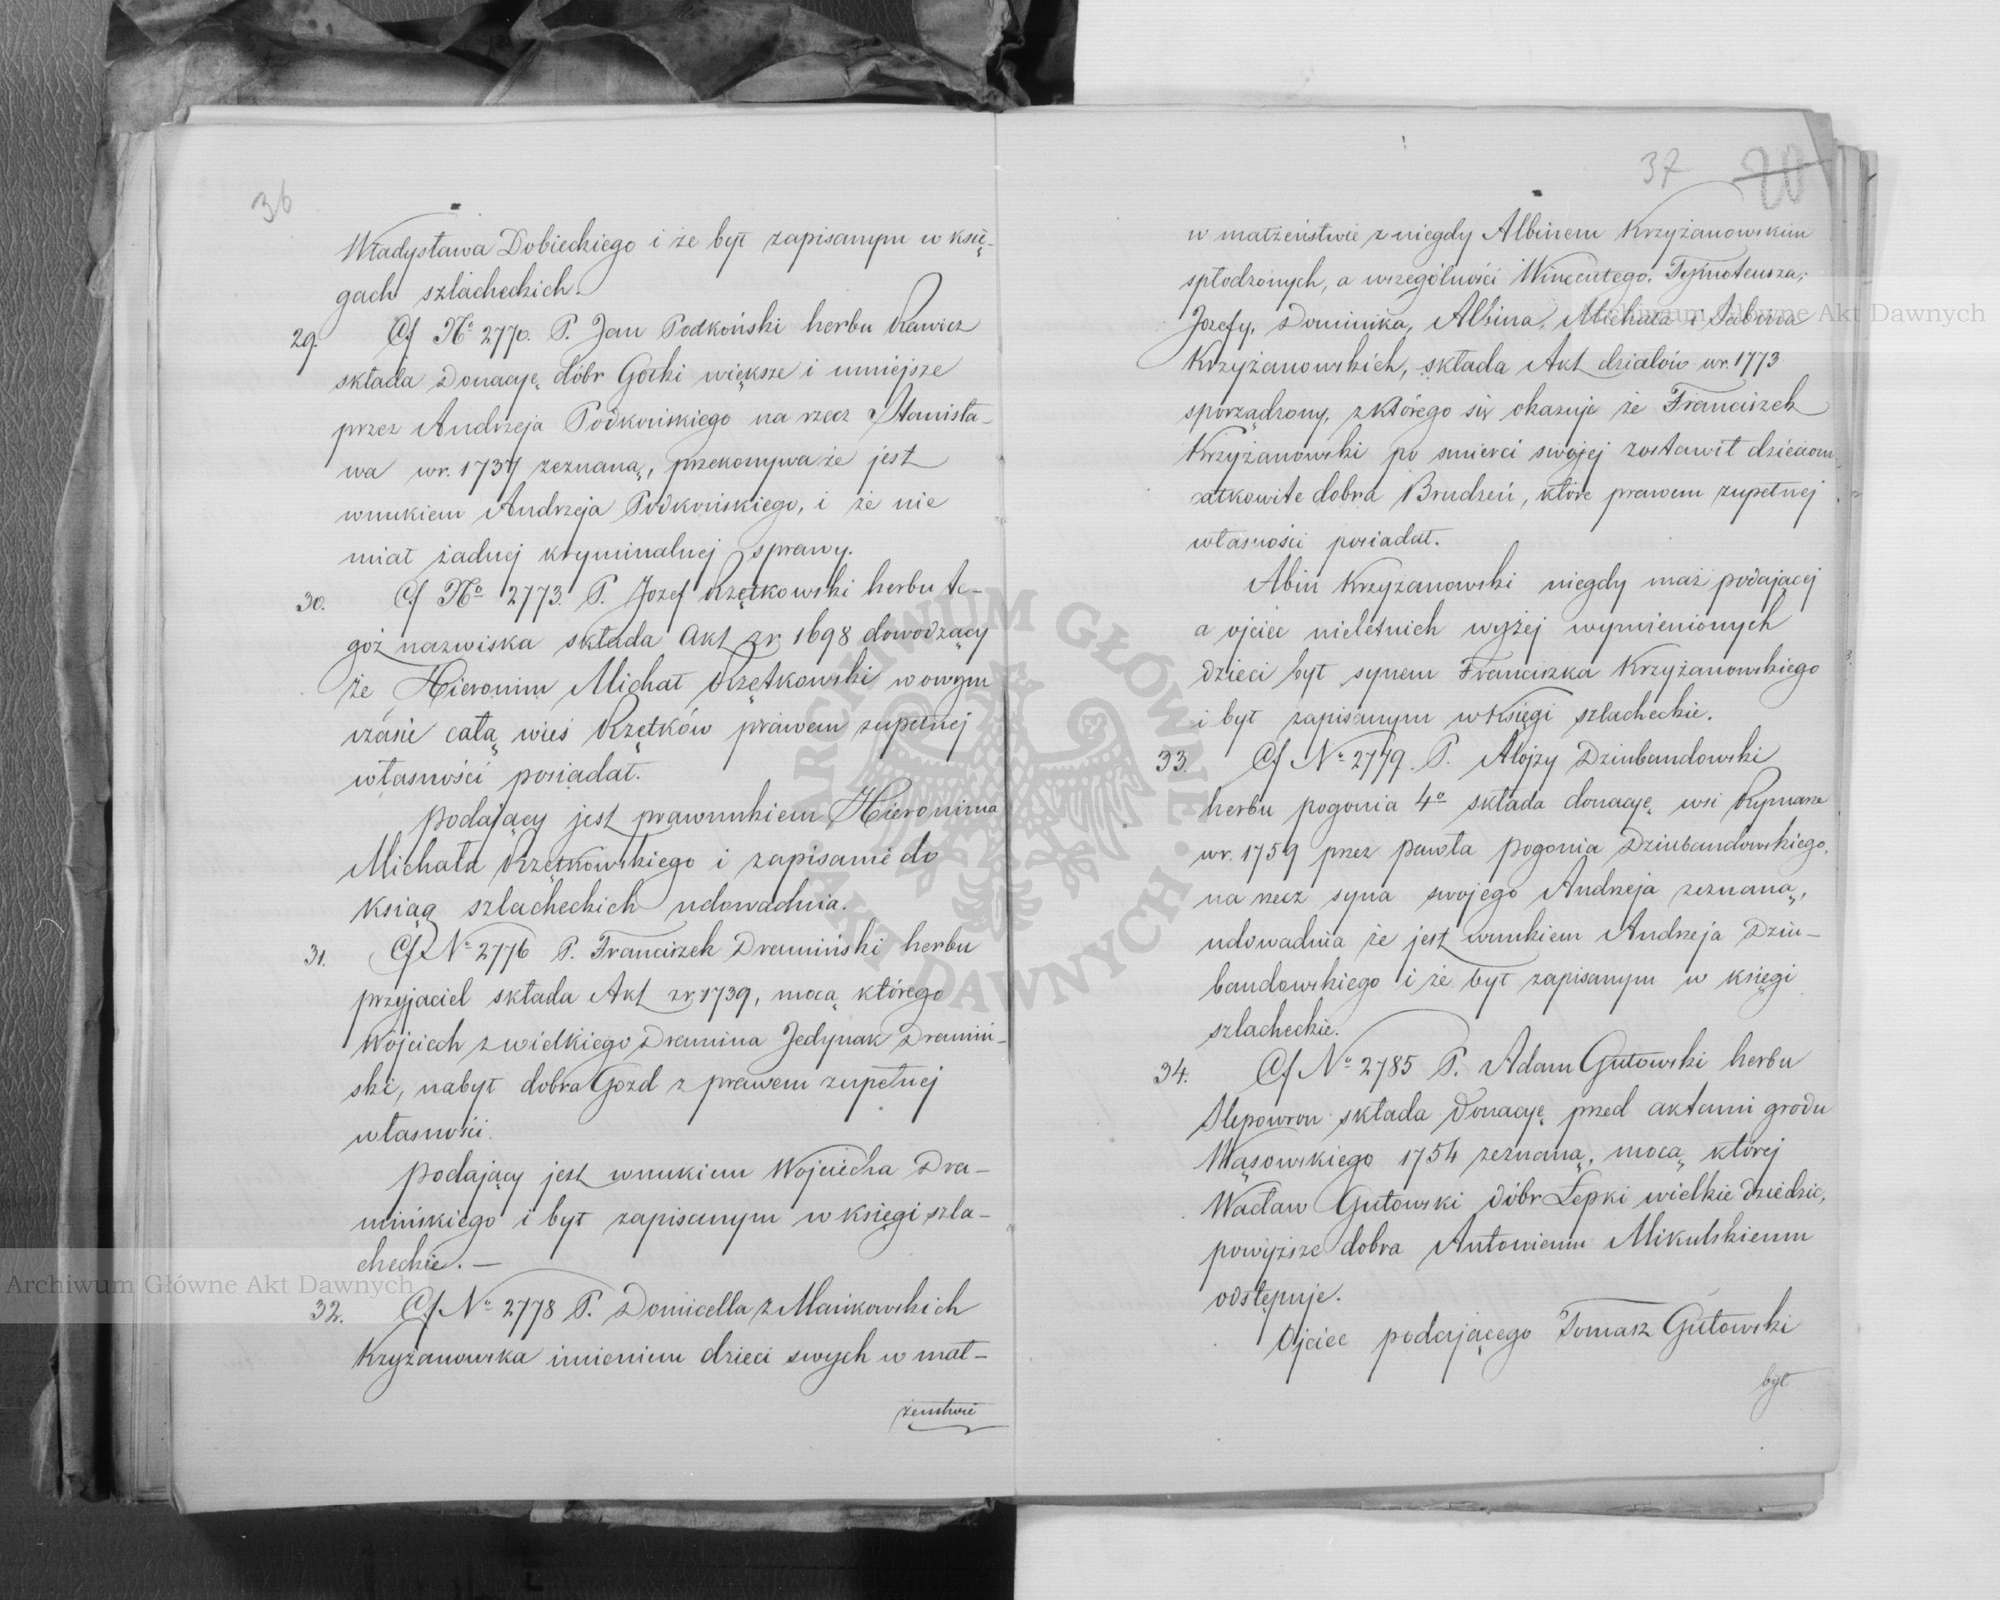 36
Władysława Dobieckiego i że był zapisanym w księ-
gach szlacheckich.
29. Cf Nº 2770. P. Jan Podkoński herbu Rawicz
składa Donacyę dóbr Górki większe i mniejsze
przez Andrzeja Podkońskiego na rzecz Stanisła-
wa w r. 1737 zeznaną, przekonywa że jest
wnukiem Andrzeja Podkońskiego, i że nie
miał żadnej kryminalnej sprawy.
30. Cf Nº 2773. P. Jozef Rzętkowski herbu te-
goż nazwiska składa Akt z r. 1698 dowodzący
że Hieronim Michał Rzętkowski w owym
czasie całą wieś Rzętków prawem zupełnej
własności posiadał.
podający jest prawnukiem Hieronima
Michała Rzętkowskiego i zapisanie do
ksiąg szlacheckich udowadnia.
31. Cf Nº 2776 P. Franciszek Dramiński herbu
przyjaciel składa Akt z r. 1739, mocą którego
Wojciech z wielkiego Dramina Jedynak Dramiń-
ski, nabył dobra Gozd z prawem zupełnej
własności.
podający jest wnukiem Wojciecha Dra-
mińskiego i był zapisanym w księgi szla-
checkie. —
32. Cf Nº 2778 P. Domicella z Mańkowskich
Krzyżanowska imieniem dzieci swych w mał-
żeństwie
37 20
w małżeństwie z niegdy Albinem Krzyżanowskim
spłodzonych, a wszególności Wincentego, Tymoteusza,
Jozefy, Dominika, Albina, Michała i Sabina
Krzyżanowskich, składa Akt działów w r. 1773
sporządzony, z którego się okazuje że Franciszek
Krzyżanowski po śmierci swojej zostawił dzieciom
całkowite dobra Brudzeń, które prawem zupełnej
własności posiadał.
Abin Krzyżanowski niegdy mąż podającej
a ojciec nieletnich wyżej wymienionych
dzieci był synem Franciszka Krzyżanowskiego
i był zapisanym w Księgi szlacheckie.
33. Cf Nº 2779. P. Alojzy Dziubandowski
herbu pogonia 4º składa donacyę wsi Rymarze
w r. 1759 przez pawła pogonia Dziubandowskiego,
na rzecz syna swojego Andrzeja zeznaną,
udowadnia że jest wnukiem Andrzeja Dziu-
bandowskiego i że był zapisanym w księgi
szlacheckie.
34. Cf Nº 2785 P. Adam Gutowski herbu
Slepowron składa Donacyę przed aktami grodu
Wąsowskiego 1754 zeznaną, mocą której
Wacław Gutowski dóbr Łepki wielkie dziedzic,
powyższe dobra Antoniemu Mikulskiemu
odstępuje.
Ojciec podającego Tomasz Gutowski
był
Archiwum Główne Akt Dawnych
Archiwum Główne Akt Dawnych
ARCHIWUM GŁÓWNE AKT DAWNYCH